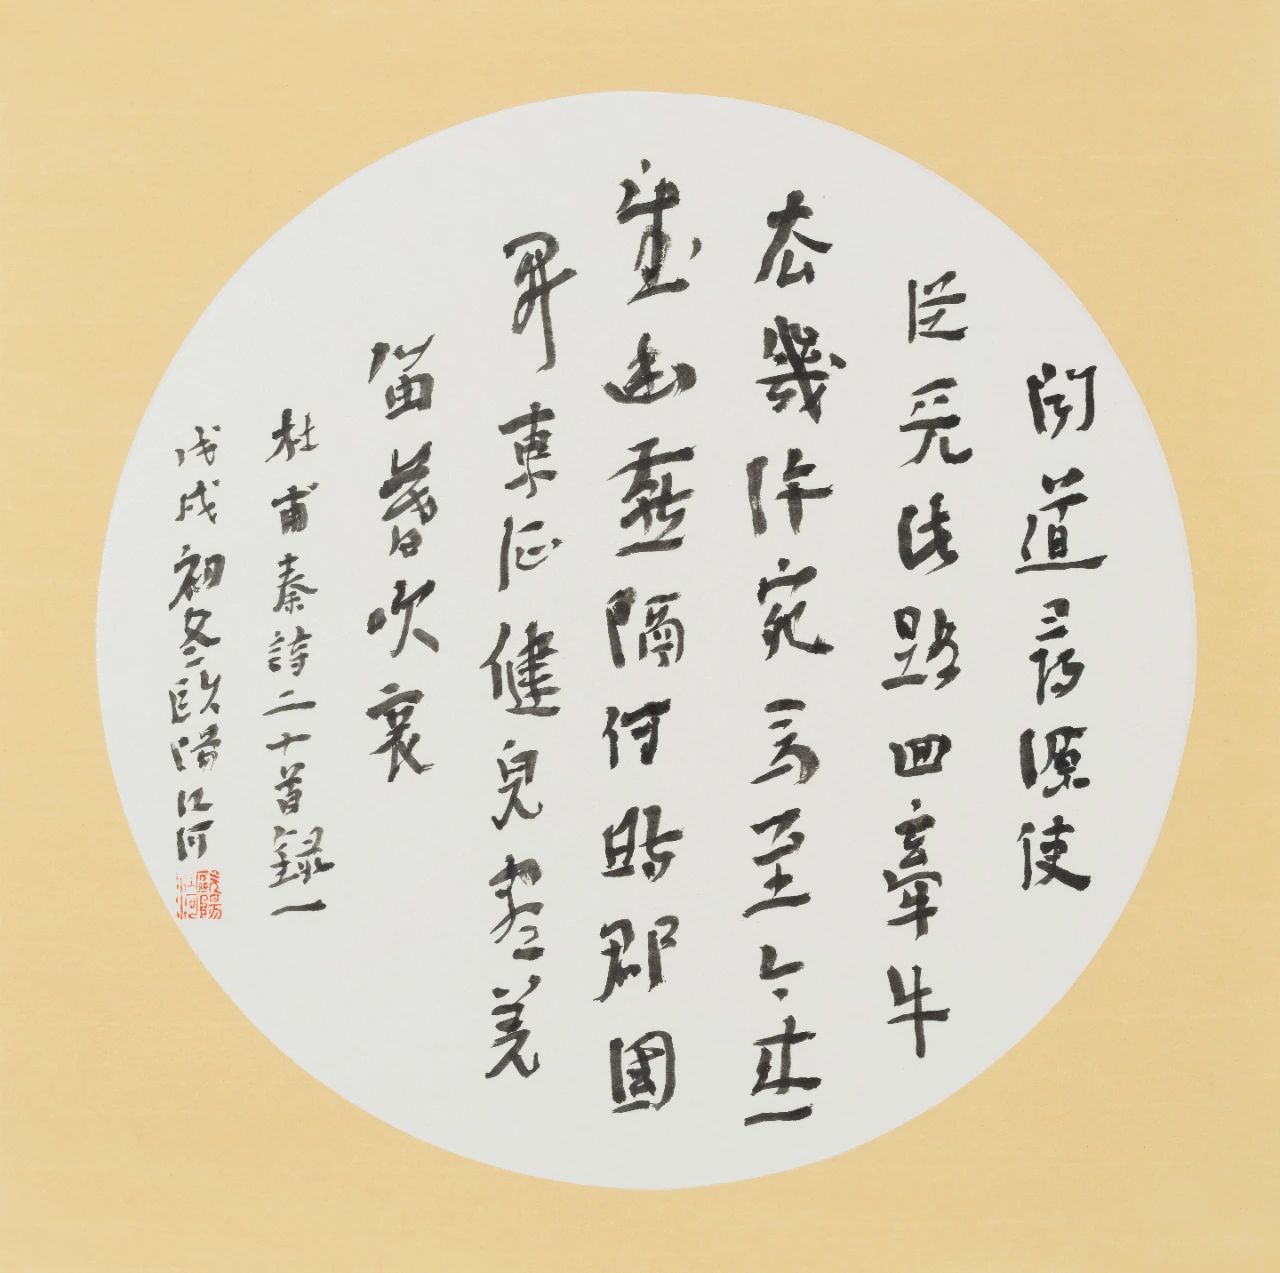 聞道尋源使
從天此路回牽牛
去幾許宛馬至今来一
望幽燕隔何時郡國
開東征健兒盡羌
笛暮吹哀
杜甫秦詩二十首録一
戊戌初冬歐陽江河
歐陽江河